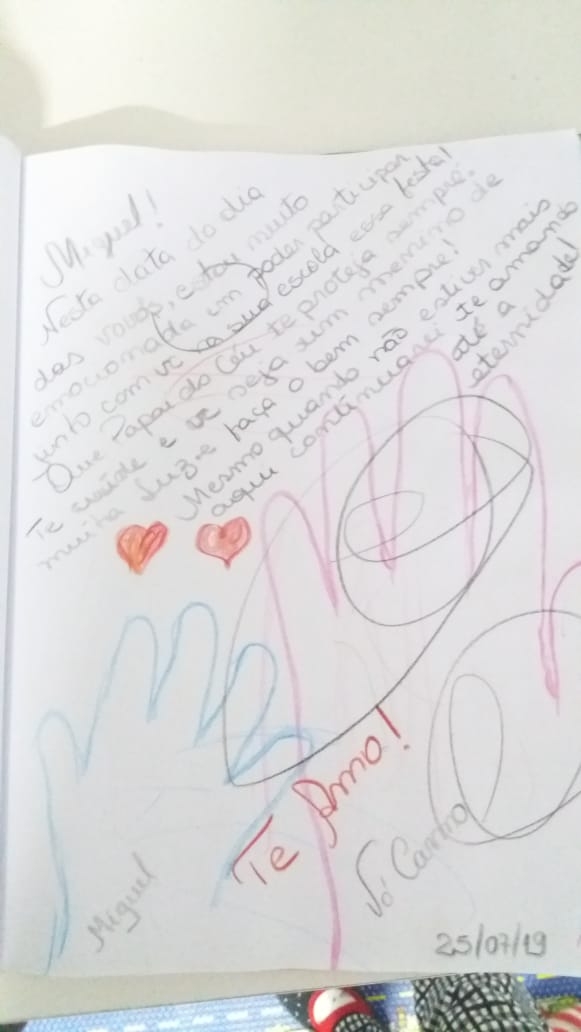 Miguel!
Nesta data do dia
dos vovós, estou muito
emocionada em poder participar
junto com vc na sua escola essa festa!
Que Papai do Céu te proteja sempre.
Te saúde e vc seja um menino de
muita luz e faça o bem sempre!
Mesmo quando não estiver mais
aqui continuarei te amando
até a
eternidade!
Te Amo!
Vó Carmo
Miguel
25/07/19